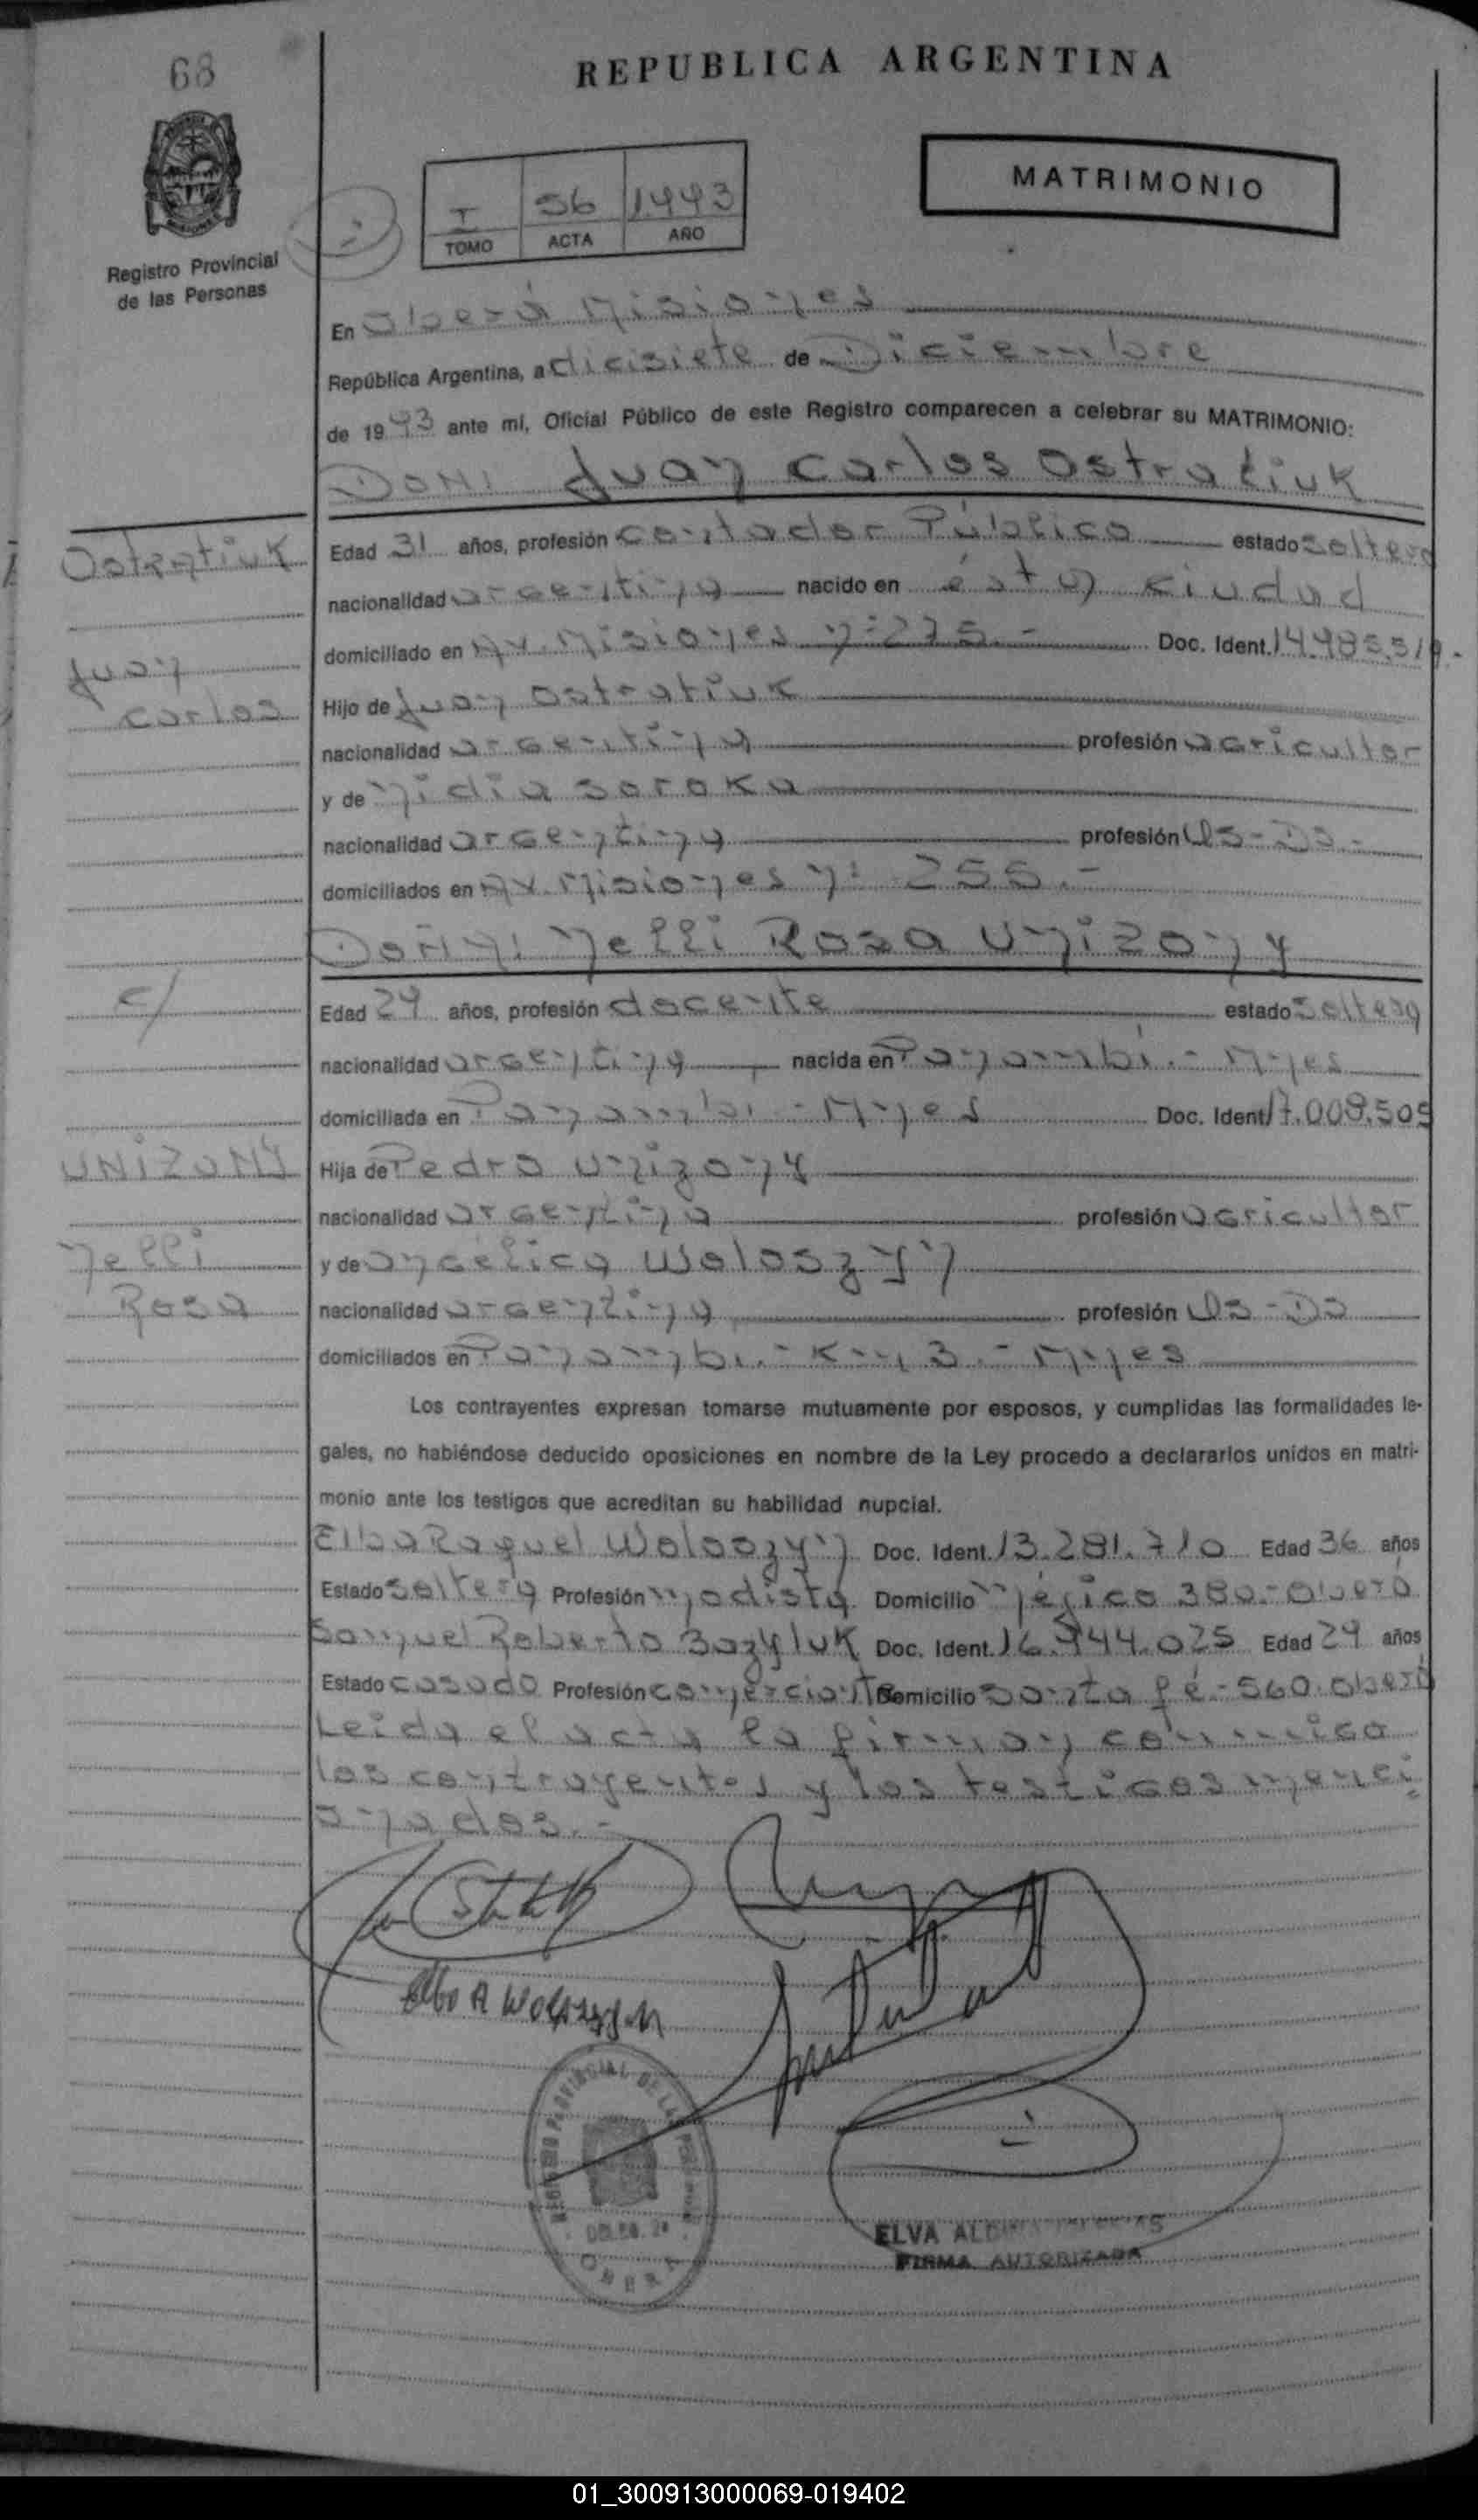 68
REPUBLICA ARGENTINA
MATRIMONIO
I 56 1993
TOMO ACTA AÑO
Registro Provincial
de las Personas
En Oberá Misiones
República Argentina, a dicisiete de Diciembre
de 1993 ante mí, Oficial Público de este Registro comparecen a celebrar su MATRIMONIO:
DON: Juan Carlos Ostratiuk
Ostratiuk
Edad 31 años, profesión contador Público estado soltero
nacionalidad argentina nacido en ésta ciudad
domiciliado en Av. Misiones nº 275.- Doc. Ident. 14.485.519.-
Juan
Carlos
Hijo de Juan Ostratiuk
nacionalidad argentina profesión agricultor
y de Nidia Soroka
nacionalidad argentina profesión Qs-Ds-
domiciliados en Av. Misiones nº 255.-
DOÑA: Nelli Rosa Unizony
c/
Edad 29 años, profesión docente estado soltera
nacionalidad argentina nacida en Panambí.- Mnes
domiciliada en Panambi - Mnes Doc. Ident. 17.009.505
UNIZONY
Hija de Pedro Unizony
nacionalidad argentina profesión agricultor
Nelli
Rosa
y de angélica Woloszyn
nacionalidad argentina profesión Qs-Ds
domiciliados en Panambi.- Km 3.- Mnes
Los contrayentes expresan tomarse mutuamente por esposos, y cumplidas las formalidades le-
gales, no habiéndose deducido oposiciones en nombre de la Ley procedo a declararlos unidos en matri-
monio ante los testigos que acreditan su habilidad nupcial.
Elba Raquel Woloszyn Doc. Ident. 13.281.710 Edad 36 años
Estado soltera Profesión modista Domicilio Méjico 380.-Oberá
Samuel Roberto Bozyluk Doc. Ident. 16.944.025 Edad 29 años
Estado casado Profesión comerciante Domicilio Santa fé-560.Oberá
Leida el acta la firman conmigo
los contrayentes y los testigos menci
onados.-
REGISTRO PROVINCIAL DE LAS PERSONAS
OBERA
ELVA
FIRMA AUTORIZADA
01_300913000069-019402